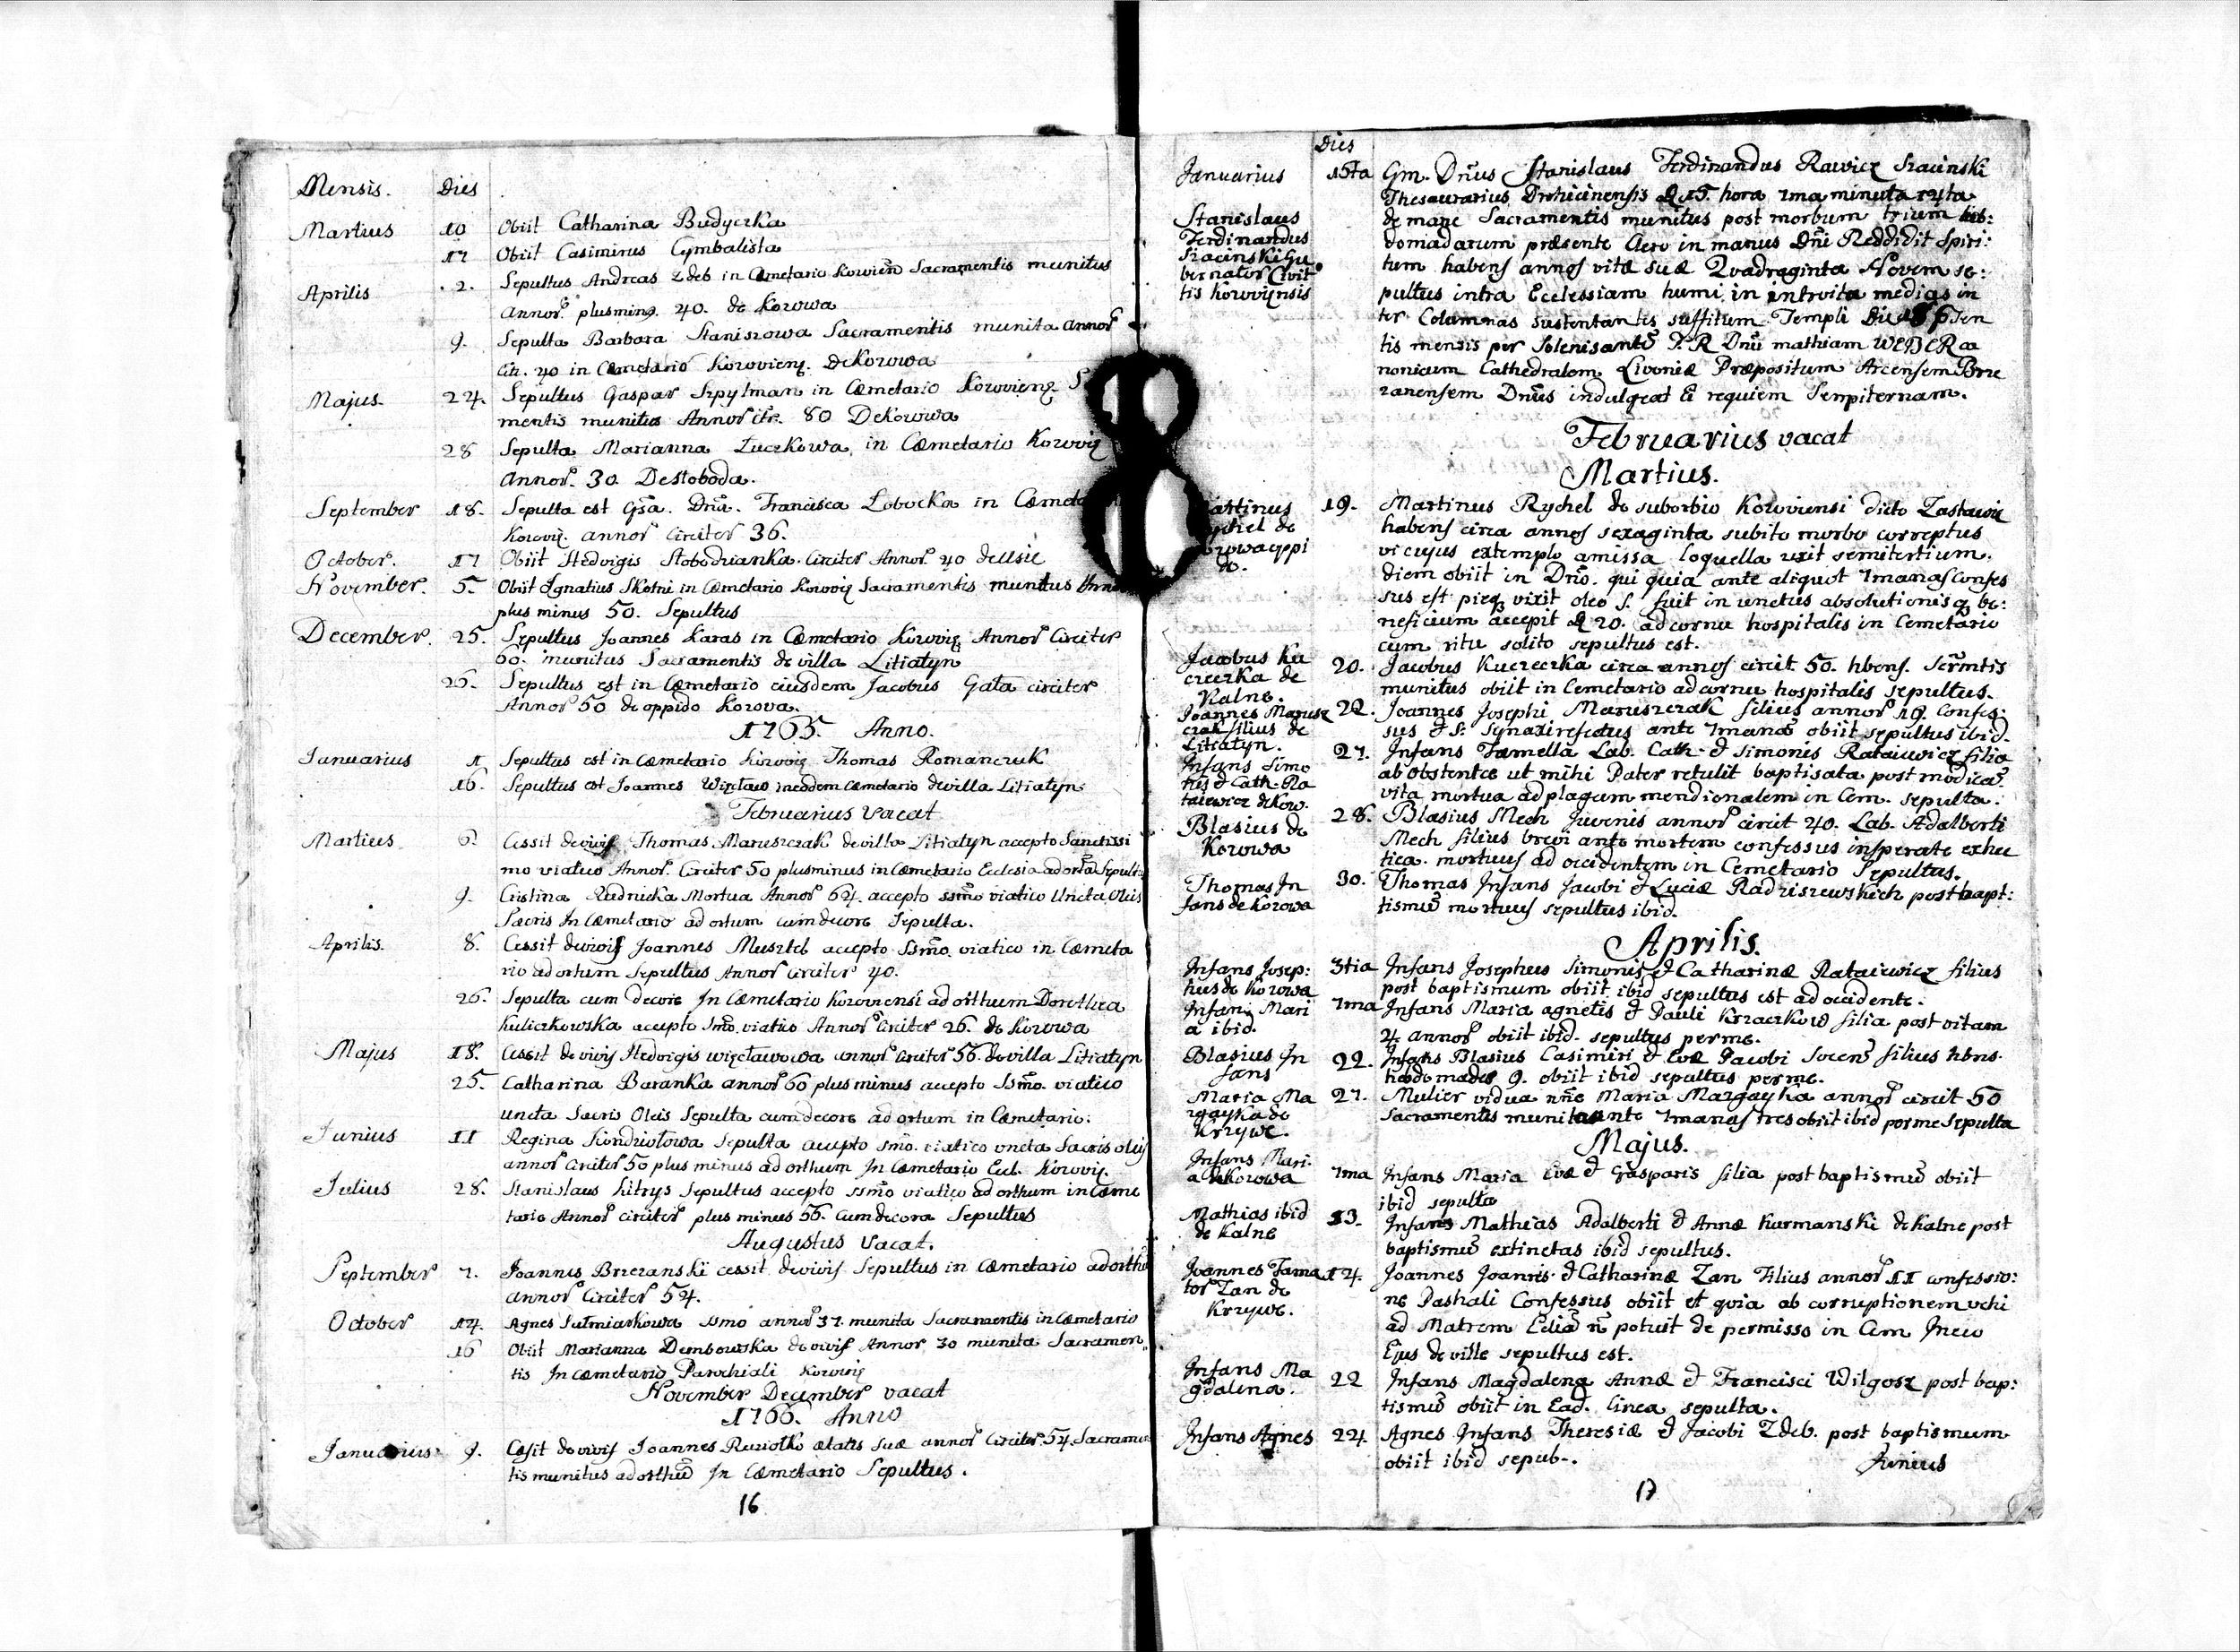 Mensis. Dies
Martius 10 Obiit Catharina Budyczka
17 Obiit Casimirus Cymbalista
Aprilis 2. Sepultus Andreas Zdeb in Cæmetario Korovien Sacramentis munitus
Annor. plus ming. 40. de Korowa
9. Sepulta Barbara Staniszowa Sacramentis munita Annor
Cir. 40 in Cæmetario Koroviens. de Korowa
Majus. 24. Sepultus Gaspar Szpylman in Cæmetario Koroviens.
mentis munitus Annor cir. 80 De Korowa
28 Sepulta Marianna Łuczkowa, in Cæmetario Korovis
Annor. 30 De Słoboda.
September 18. Sepulta est Gsa. Dna. Francisca Lobocka in Cæmeta
Korovis. annor circiter 36.
October. 17 Obiit Hedvigis Słobodzianka. Circiter Annor. 40 de
November. 5. Obiit Ignatius Skotni in Cæmetario Korovis Sacramentis munitus Anno
plus minus 50. Sepultus
December. 25. Sepultus Joannes Karas in Cæmetario Korovis Annor Circiter
60. munitus Sacramentis de villa Litiatyn
26. Sepultus est in Cæmetario eiusdem Jacobus Gała circiter
Annor 50 de oppido Korova.
1765. Anno.
Januarius 1 Sepultus est in Cæmetario Korovis Thomas Romanczuk
16. Sepultus est Joannes Więcław in eodem Cæmetario de villa Litiatyn
Februarius Vacat
Martius 6. Cessit de vivis Thomas Maruszczak de villa Litiatyn accepto Sanctissi
mo viatico Annor. Circiter 50 plus minus in Cæmetario Ecclesia ad ortu Sepult
9. Cristina Rudnicka Mortua Annor 64. accepto ssmo viatico Uncta Oleis
Sacris In Cæmetario ad ortum cum decore Sepulta.
Aprilis. 8. Cessit de vivis Joannes Musztel accepto Ssmo. viatico in Cæmeta
rio ad ortum Sepultus Annor Circiter 40.
26. Sepulta cum decore In Cæmetario Koroviensi ad orthum Dorothea
Kuliczkowska accepto Smo. viatico Annor Circiter 26. de Korowa
Majus 18. Cessit de vivis Hedvigis więcławowa annor Circiter 56. de villa Litiatyn
25. Catharina Baranka annor 60 plus minus accepto Ssmo. viatico
uncta Sacris Oleis Sepulta cum decore ad ortum in Cæmetario.
Junius 11 Regina Kondziołowa Sepulta accepto Smo. viatico uncta Sacris oleis
annor Circiter 50 plus minus ad orthum In Cæmetario Eccl. Korovis.
Julius 28. Stanislaus Kitrys Sepultus accepto ssmo viatico ad orthum in Cæme
tario Annor circiter plus minus 56. cum decora Sepultus
Augustus Vacat.
September 7. Joannes Brzezanski cessit de vivis Sepultus in Cæmetario ad orthu
annor Circiter 54.
October 14. Agnes Sutmiarkowa ssmo annor 37. munita Sacramentis in Cæmetario
16 Obiit Marianna Dembowska de vivis Annor 30 munita Sacramen
tis In Cæmetario Parochiali Korovis
November December vacat
1766. Anno
Januarius 9. Cesit de vivis Joannes Ruziołko ætatis suæ annor Circiter 54. Sacramen
tis munitus ad orthu In Cæmetario Sepultus.
16
Dies
Januarius 15ta Gm. Dnus Stanislaus Ferdinandus Rawicz Szacinski
Thesaurarius Drohicinensis D 15. hora 1ma minuta
Stanislaus de mane Sacramentis munitus post morbum trium heb:
Ferdinandus domadarum præsente Clero in manus Dni Reddidit Spiri:
Szacinski Gu tum habens annos vitæ suæ Quadraginta Novem se:
bernator Civit
tis Korovijnsis pultus intra Ecclessiam humi in introitu medias in
ter Columnas sustentantes suffitum Templi Die
tis mensis per Solenisantu P. R Dnu mathiam WEBER Ca
nonicum Cathedralem Livoniæ Præpositum Arcensem Brze
zanensem Dnus indulgeat Ei requiem Sempiternam.
Februarius vacat
Martius.
Martinus 19. Martinus Rychel de suborbio Koroviensi dicto Zastawie
Rychel de habens circa annos sexaginta subito morbo correptus
Korowa oppi vi cujus extemplo amissa loquella vixit semitertium.
do. diem obiit in Dno. qui quia ante aliquot 7manas Confes
sus est pieq vixit oleo S. fuit in unctus absolutionisq be:
neficium accepit D 20. ad cornu hospitalis in Cemetario
cum ritu solito sepultus est.
Jacobus Ku 20. Jacobus Kuczeczka circa annos circit 50. hbens. Scrmtis
czeczka de munitus obiit in Cemetario ad cornu hospitalis sepultus.
Kalne.
Joannes Marusz 22. Joannes Josephi Maruszczak filius annor 19. Confes:
czak filius de sus & S: Synaxi refectus ante 7mana obiit sepultus ibid.
Litiatyn.
Infans Simo 27. Infans Famella Lab. Cath. & Simonis Rataiewicz filia
nis & Cath. Ra ab Obstentce ut mihi Pater retulit baptisata post modica
taiewicz de Kow. vita mortua ad plagam meridionalem in Cem. sepulta.
Blasius de 28. Blasius Mech Juvenis annor circit 40. Lab. Adalberti
Korowa Mech filius brevi ante mortem confessus insperate exhec
tica. mortuus ad occidentem in Cemetario Sepultus.
Thomas In 30. Thomas Infans Jacobi & Luciæ Radziszewskich post bapt:
fans de Korowa tismu mortuus sepultus ibid.
Aprilis.
Infans Josep: 3tia Infans Josephus Simonis & Catharinæ Rataiewicz filius
hus de Korowa post baptismum obiit ibid sepultus est ad occidente.
Infans Mari 7ma Infans Maria agnetis & Pauli Krzaczkow filia post vitam
a ibid. 4 annor obiit ibid. sepultus per me.
Blasius In 22. Infans Blasius Casimiri & Evæ Jacobi filius hbns.
fans hebdomades 9. obiit ibid sepultus per me.
Maria Ma 27. Mulier vidua nne Maria Margayka annor circit 50
rgayka de Sacramentis munita ante 7manas tres obiit ibid per me Sepulta
Krzywe.
Majus.
Infans Mari
a de Korowa 7ma Infans Maria Evæ & Gasparis filia post baptismu obiit
ibid sepulta
Mathias ibid 13. Infans Mathias Adalberti & Annæ Kurmanski de Kalne post
de Kalne baptismu extinctas ibid sepultus.
Joannes Fama 14. Joannes Joannis & Catharinæ Zan Filius annor 11 confessio:
tor Zan de ne Pashali Confessus obiit et quia ob corruptionem vehi
Krzywe. ad Matrem Eclia n potuit de permisso in Cem
Ejus de ville sepultus est.
Infans Ma 22 Infans Magdalena Annæ & Francisci Wilgosz post bap:
gdalena. tismu obiit in Ead. linea sepulta.
Infans Agnes 24 Agnes Infans Theresiæ & Jacobi Zdeb. post baptismum
obiit ibid sepub-. Junius
17